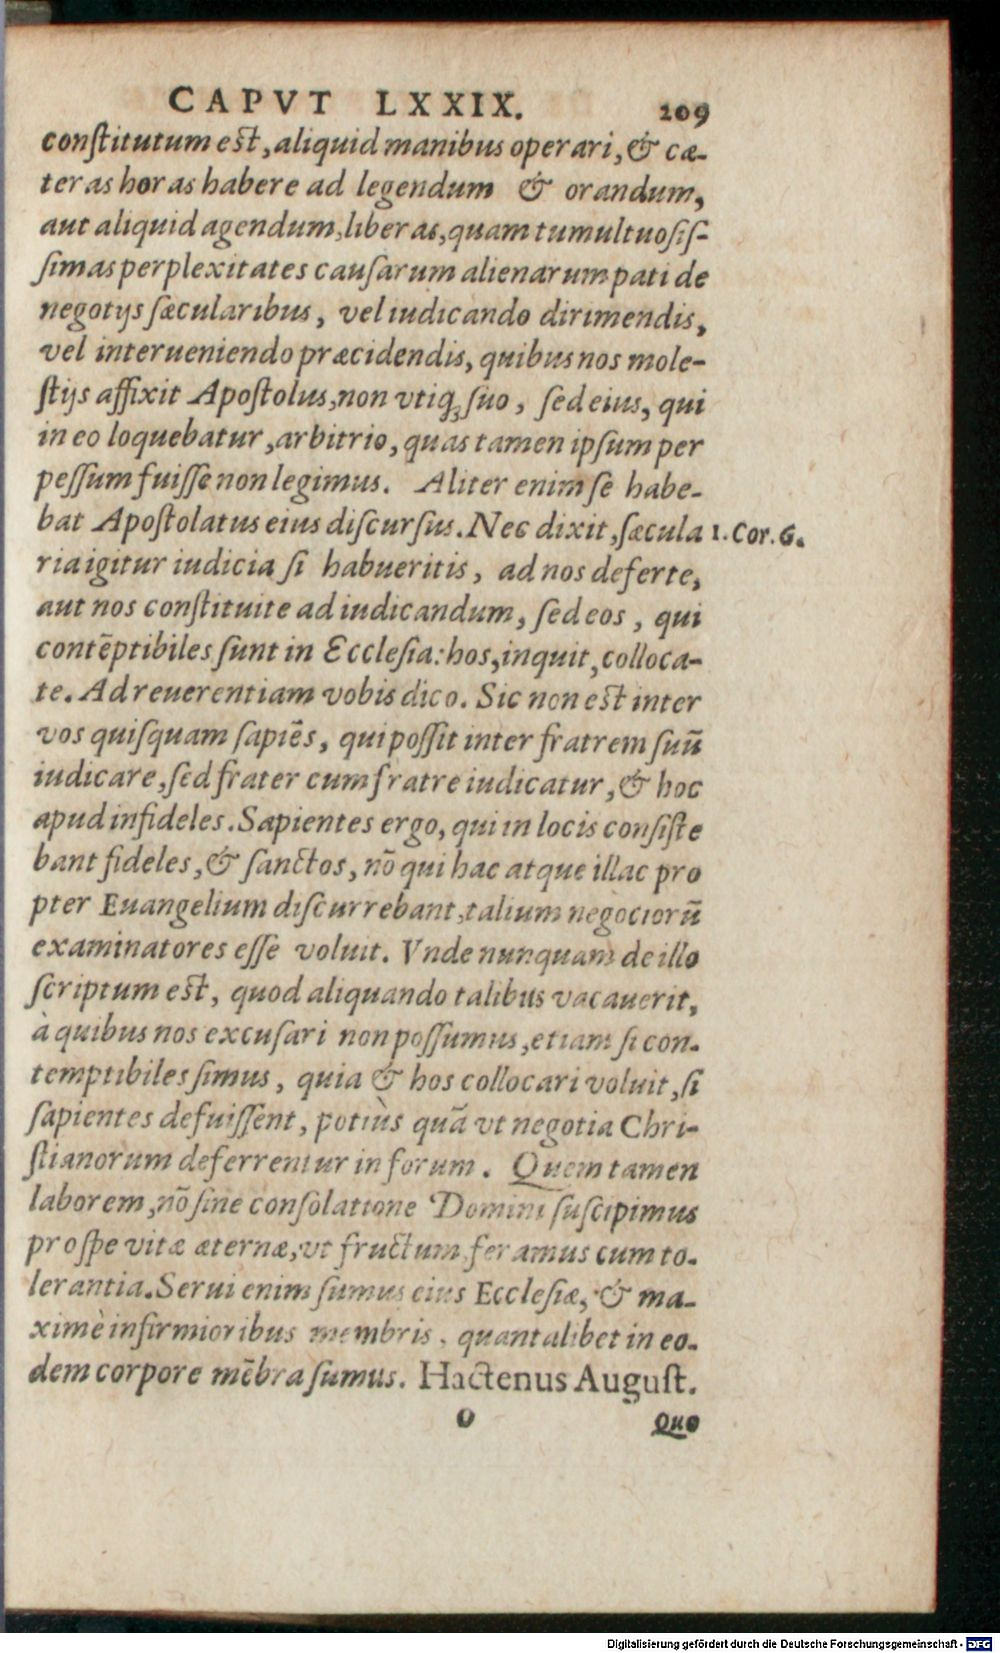 CAPVT LXXIX. 209
conſtitutum eſt, aliquid manibus operari, & cæ-
teras horas habere ad legendum & orandum,
aut aliquid agendum, liberas, quam tumultuoſiſ-
ſimas perplexitates cauſarum alienarum pati de
negotijs ſæcularibus, vel iudicando dirimendis,
vel interueniendo præcidendis, quibus nos mole-
ſtijs affixit Apoſtolus, non vtiq; ſuo, ſed eius, qui
in eo loquebatur, arbitrio, quas tamen ipſum per
peſſum fuiſſe non legimus. Aliter enim ſe habe-
bat Apoſtolatus eius diſcurſus. Nec dixit, ſæcula 1. Cor. 6.
ria igitur iudicia ſi habueritis, ad nos deferte,
aut nos conſtituite ad iudicandum, ſed eos, qui
contēptibiles ſunt in Eccleſia: hos, inquit, colloca-
te. Ad reuerentiam vobis dico. Sic non eſt inter
vos quiſquam ſapiēs, qui poſſit inter fratrem ſuū
iudicare, ſed frater cum fratre iudicatur, & hoc
apud infideles. Sapientes ergo, qui in locis conſiſte
bant fideles, & ſanctos, nō qui hac atque illac pro
pter Euangelium diſcurrebant, talium negociorū
examinatores eſſe voluit. Vnde nunquam de illo
ſcriptum eſt, quod aliquando talibus vacauerit,
à quibus nos excuſari non poſſumus, etiam ſi con-
temptibiles ſimus, quia & hos collocari voluit, ſi
ſapientes defuiſſent, potiùs quā vt negotia Chri-
ſtianorum deferrentur in forum. Quem tamen
laborem, nō ſine conſolatione Domini ſuſcipimus
pro ſpe vitæ æternæ, vt fructum feramus cum to-
lerantia. Serui enim ſumus eius Eccleſiæ, & ma-
ximè infirmioribus membris, quantalibet in eo-
dem corpore mēbra ſumus. Hactenus Auguſt.
O Quo
Digitalisierung gefördert durch die Deutsche Forschungsgemeinschaft - DFG